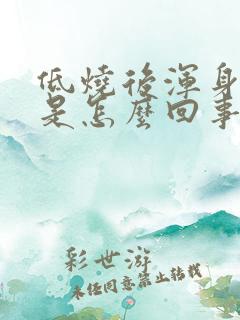 低燒後渾身
是怎麼回事
彩世游
未经同意禁止转载